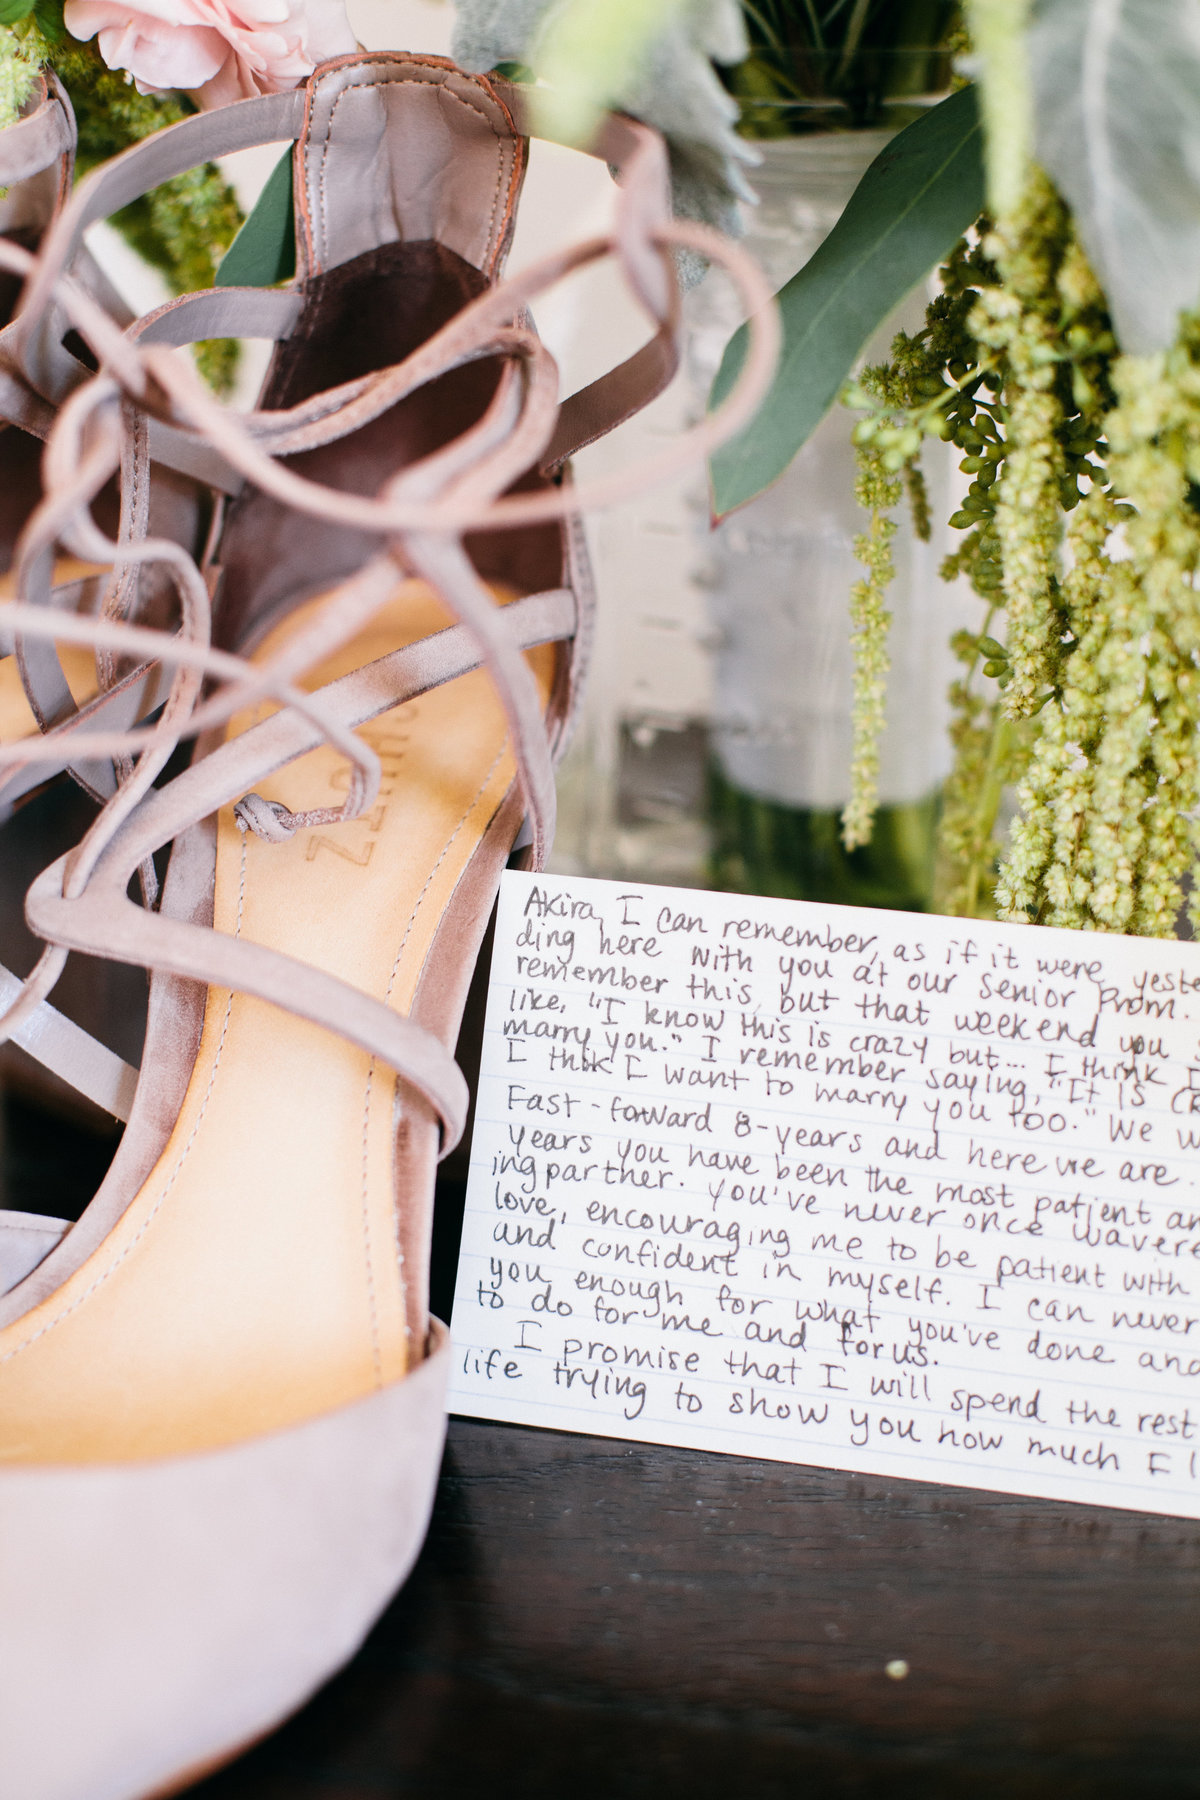 SCHUTZ
Akira, I can remember, as if it were yeste
ding here with you at our Senior Prom.
remember this, but that weekend you s
like, "I know this is crazy but... I think I
marry you." I remember saying, "It is cr
I think I want to marry you too." We w
Fast-forward 8-years and here we are.
years you have been the most patient an
ing partner. You've never once wavere
love, encouraging me to be patient with
and confident in myself. I can never
you enough for what you've done and
to do for me and for us.
I promise that I will spend the rest
life trying to show you how much I l